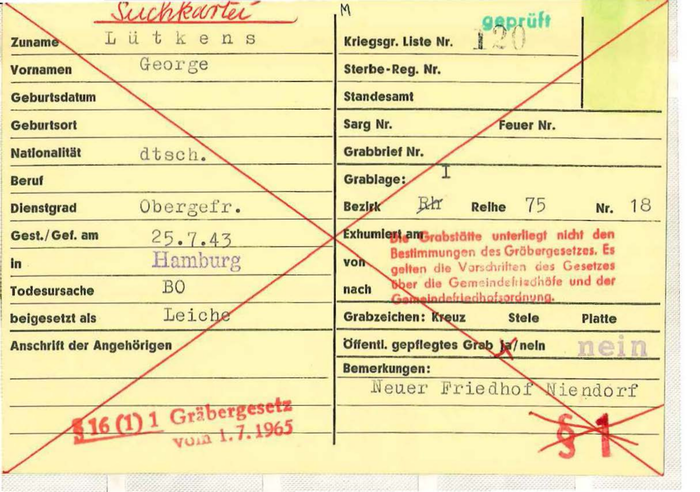 Suchkartei
M
geprüft
Zuname Lütkens
Vornamen George
Geburtsdatum
Geburtsort
Nationalität dtsch.
Beruf
Dienstgrad Obergefr.
Gest./Gef. am 25.7.43
in Hamburg
Todesursache BO
beigesetzt als Leiche
Anschrift der Angehörigen
§ 16 (1) 1 Gräbergesetz
vom 1.7.1965
Kriegsgr. Liste Nr. 120
Sterbe-Reg. Nr.
Standesamt
Sarg Nr. Feuer Nr.
Grabbrief Nr.
Grablage: I
Bezirk Rh Reihe 75 Nr. 18
Exhumiert am
von
nach
Die Grabstätte unterliegt nicht den
Bestimmungen des Gräbergesetzes. Es
gelten die Vorschriften des Gesetzes
über die Gemeindefriedhöfe und der
Gemeindefriedhofsordnung.
Grabzeichen: Kreuz Stele Platte
Öffentl. gepflegtes Grab ja/nein nein
Bemerkungen:
Neuer Friedhof Niendorf
§ 1